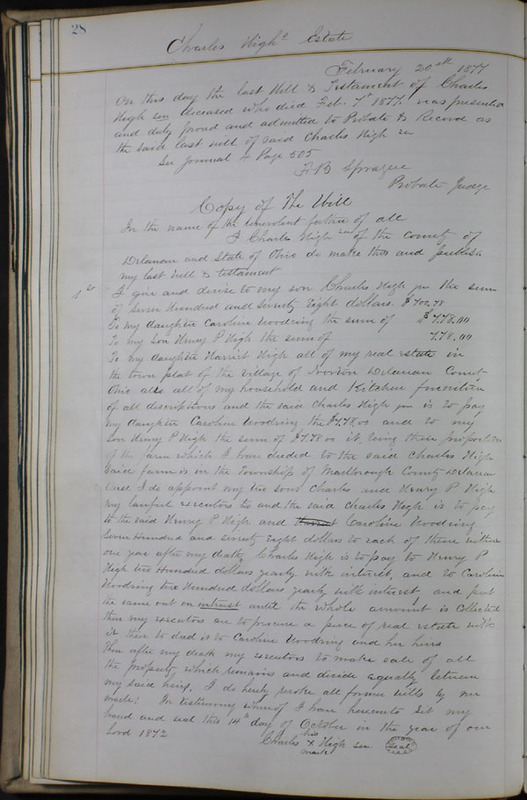 28
Charles High Estate
February 20th 1877
On this day the last Will & Testament of Charles
High sen deceased who died Feb. 7th 1877 was presented
and duly proved and admitted to Probate & Record as
the said last will of said Charles High sen
See Journal 4 Page 505
A B Sprague
Probate Judge
Copy of The Will
In the name of the benevolent father of all
I Charles High sen of the County of
Delaware and State of Ohio do make this and publish
my last will & testament
1st I give and devise to my son Charles High jun the sum
of Seven Hundred and seventy Eight dollars.
To my daughter Caroline Woodring the sum of $778.00
To my son Henry P High the sum of 778.00
To my daughter Harriet High all of my real estate in
the town plat of the village of Norton Delaware County
Ohio also all of my household and Kitchen furniture
of all discriptions and the said Charles High jun is to pay
my daughter Caroline Woodring the $778.00 and to my
son Henry P High the sum of $778.00 it being their proportion
of the farm which I have deeded to the said Charles High
said farm is in the Township of Marlbrough County Delaware
I do appoint my two sons Charles and Henry P High
my lawful executors to and the said Charles High is to pay
to the said Henry P High and Harriet Caroline Woodring
Seven Hundred and seventy Eight dollars to each of them within
one year after my death, Charles High is to pay to Henry P
High two Hundred dollars yearly with interest, and to Caroline
Woodring two Hundred dollars yearly with interest and put
the same out on intrust until the whole amount is collected
then my executors are to procure a piece of real estate with
it then to deed it to Caroline Woodring and her heirs
Then after my death my executors to make sale of all
the property which remains and divide equally between
my said heirs, I do hereby revoke all former wills by me
made: In testimony whereof I have hereunto set my
hand and seal this 14th day of October in the year of our
Lord 1872
his
Charles X High sen Seal
mark